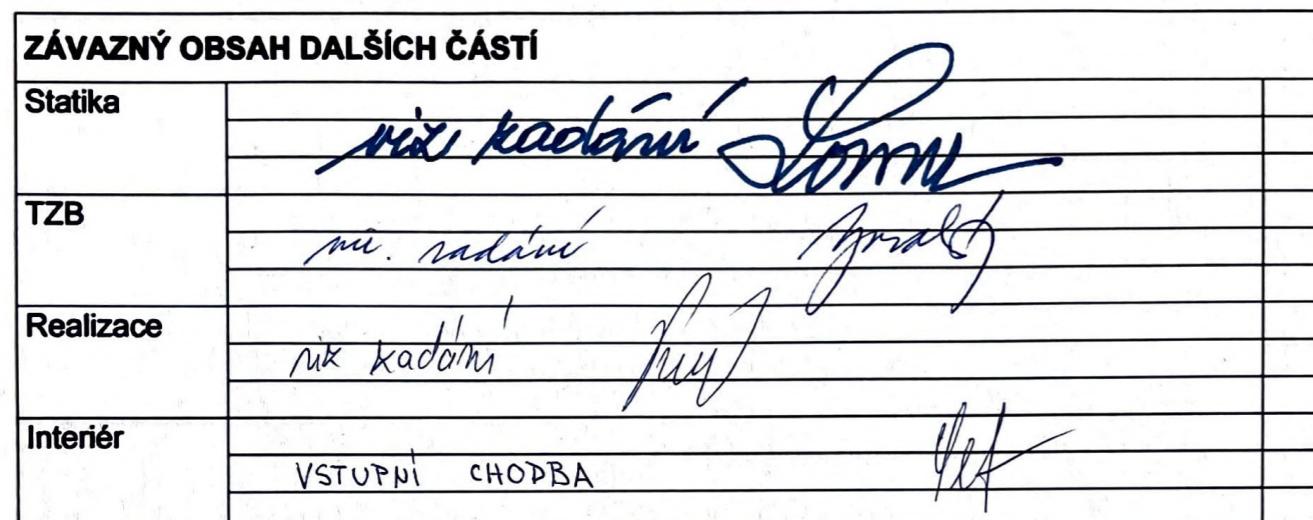 ZÁVAZNÝ OBSAH DALŠÍCH ČÁSTÍ
Statika
viz zadání
TZB
viz. zadání
Realizace
viz zadání
Interiér
VSTUPNÍ CHODBA